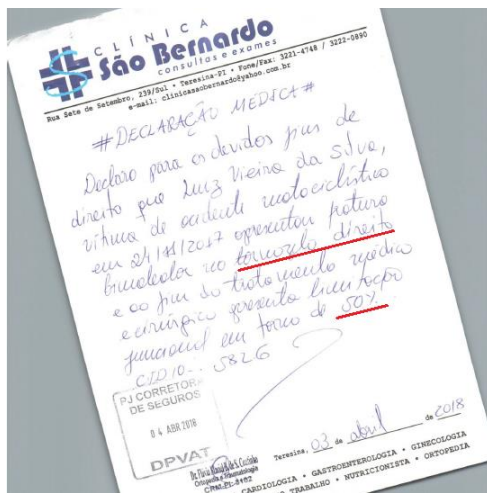 CLÍNICA
São Bernardo
consultas e exames
Rua Sete de Setembro, 239/Sul • Teresina-PI • Fone/Fax: 3221-4748 / 3222-0890
e-mail: clinicasaobernardo@yahoo.com.br
#DECLARAÇÃO MÉDICA#
Declaro para os devidos fins de
direito que Luiz Vieira da Silva,
vítima de acidente motociclístico
em 24/11/2017 apresentou fratura
bimaleolar no tornozelo direito
e ao fim do tratamento médico
e cirúrgico apresenta limitação
funcional em torno de 50%.
CID 10.. S826
PJ CORRETORA
DE SEGUROS
04 ABR 2018
DPVAT
Ortopedia e Traumatologia
Teresina, 03 de abril de 2018
CARDIOLOGIA • GASTROENTEROLOGIA • GINECOLOGIA
TRABALHO • NUTRICIONISTA • ORTOPEDIA